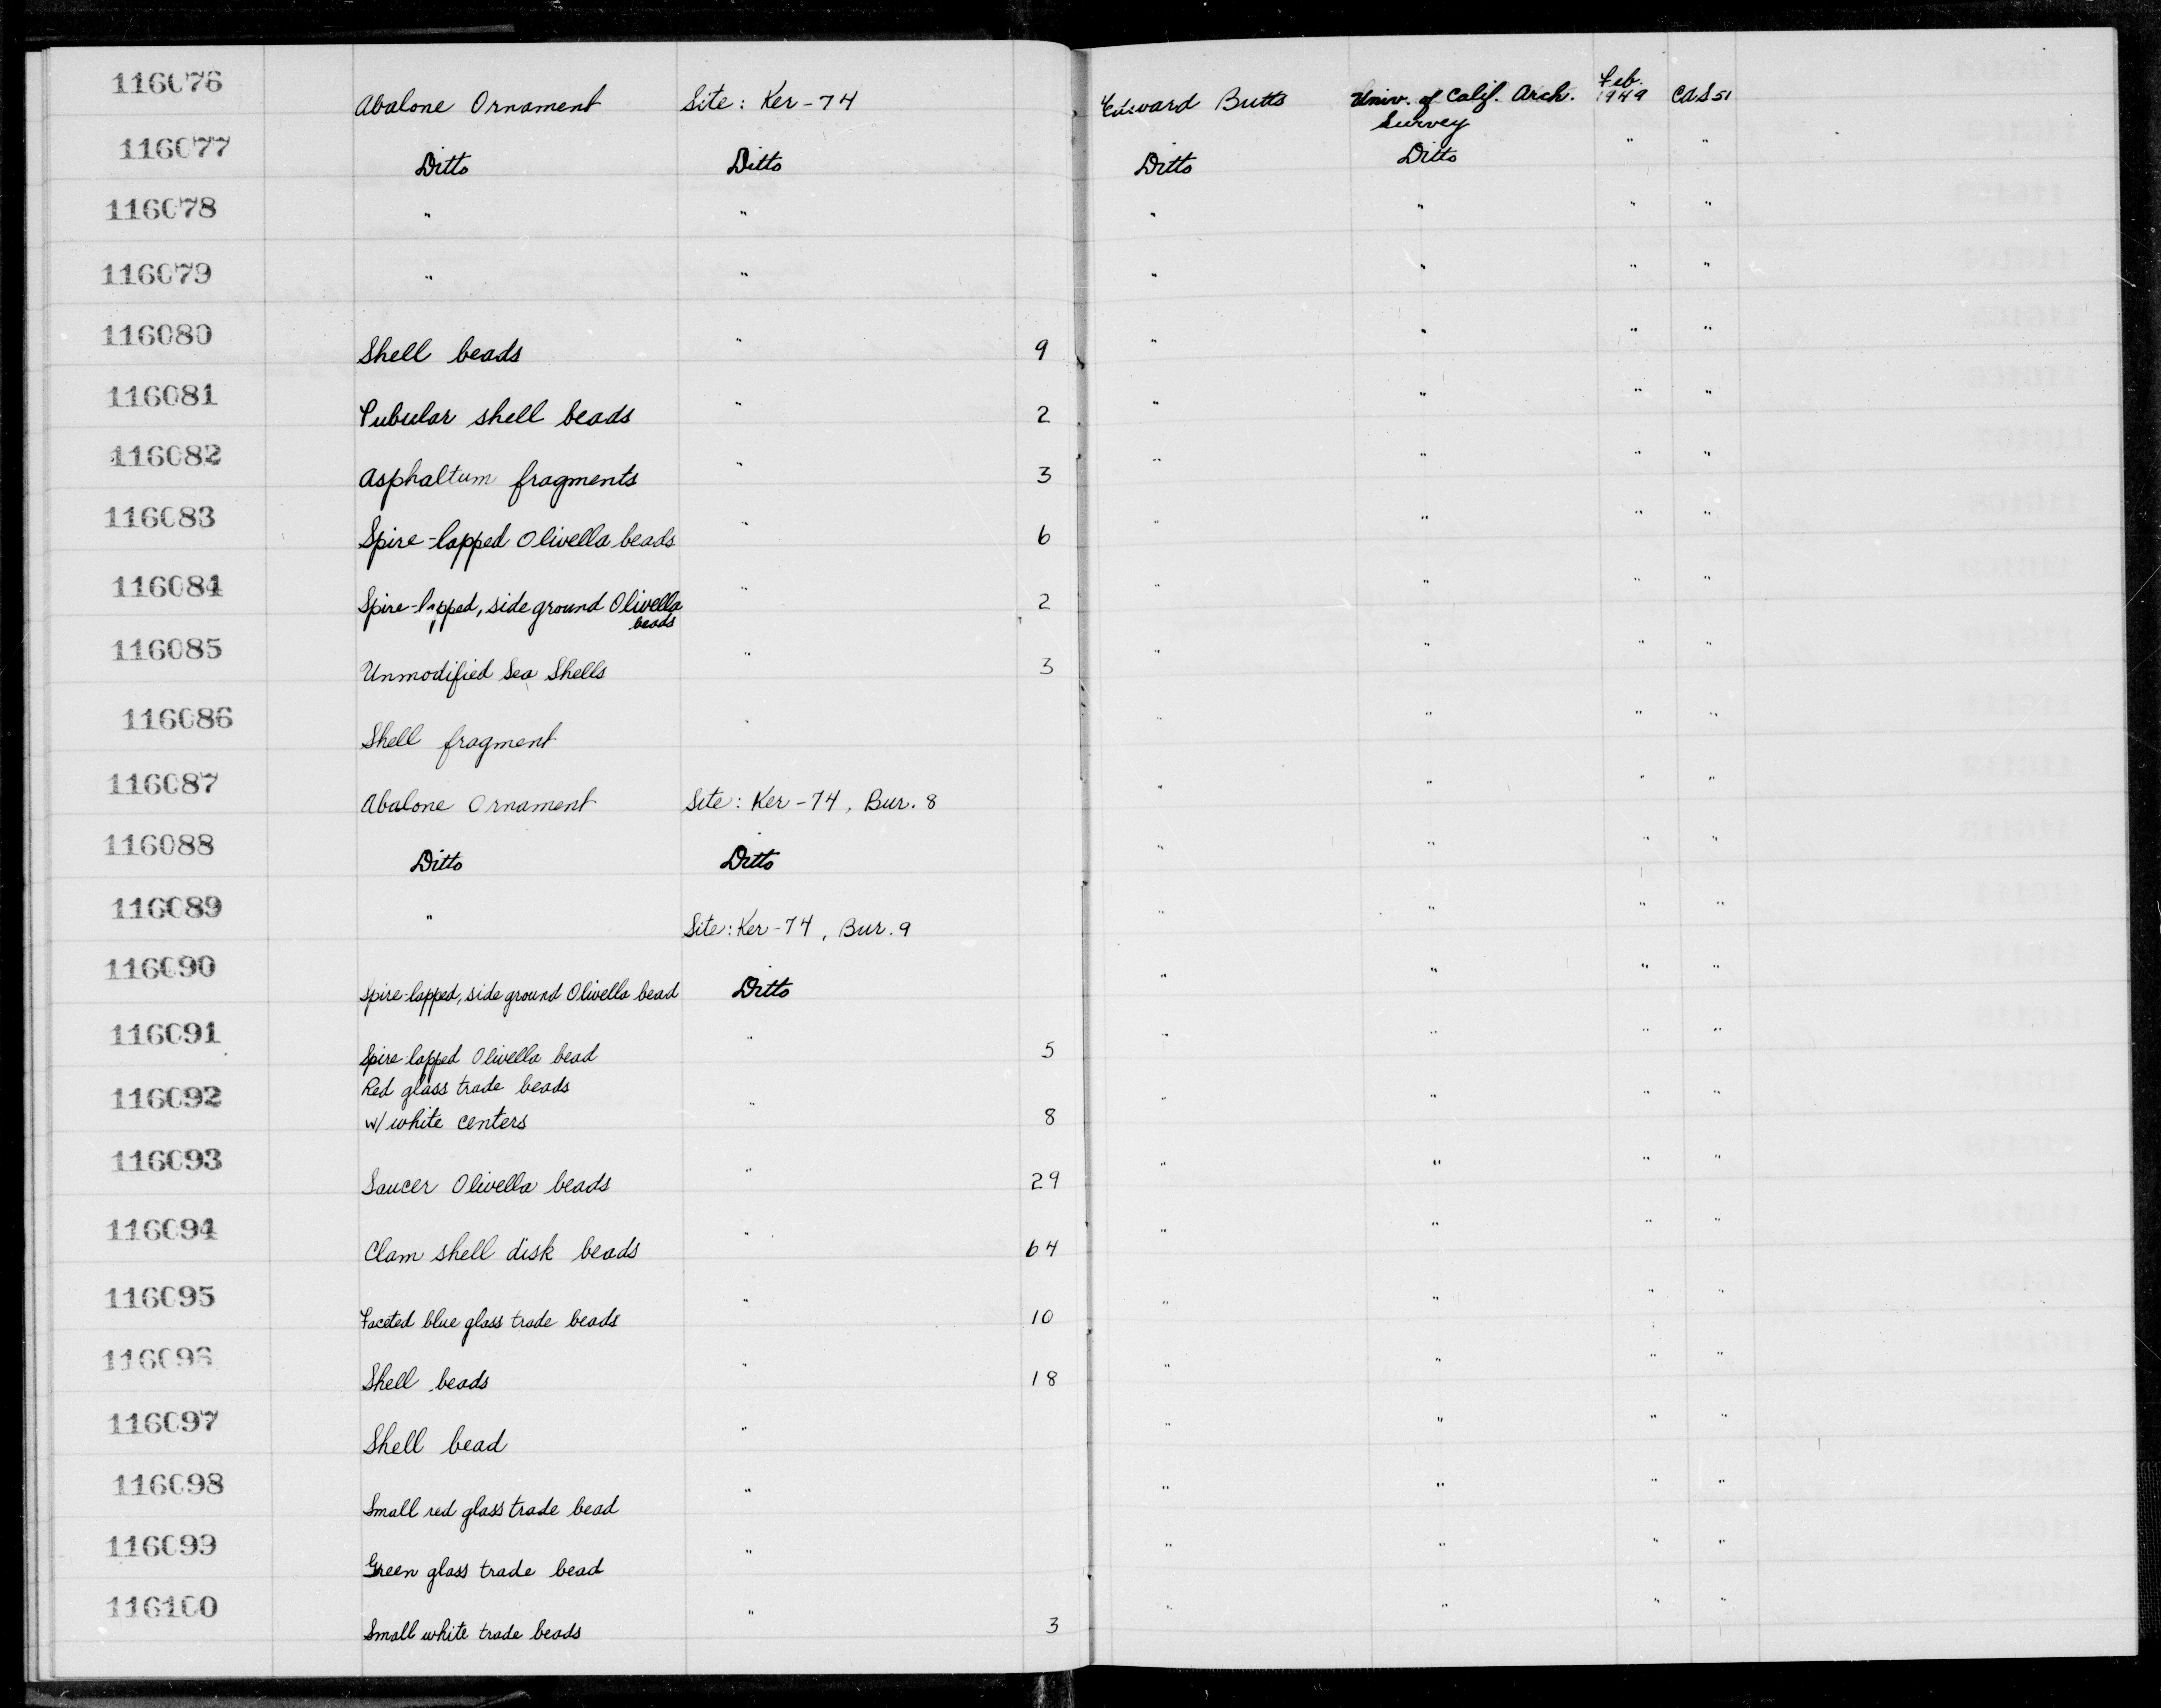 116076 Abalone Ornament Site: Ker-74 Edward Butts Univ. of Calif. Arch. Survey Feb. 1949 CAS 51
116077 Ditto Ditto Ditto Ditto " "
116078 " " " " " "
116079 " " " " " "
116080 Shell beads " 9 " " " "
116081 Tubular shell beads " 2 " " " "
116082 Asphaltum fragments " 3 " " " "
116083 Spire-lopped Olivella beads " 6 " " " "
116084 Spire-lopped, side ground Olivella beads " 2 " " " "
116085 Unmodified Sea Shells " 3 " " " "
116086 Shell fragment " " " " "
116087 Abalone Ornament Site: Ker-74, Bur. 8 " " " "
116088 Ditto Ditto " " " "
116089 " Site: Ker-74, Bur. 9 " " " "
116090 Spire-lopped, side ground Olivella bead Ditto " " " "
116091 Spire-lopped Olivella bead " 5 " " " "
116092 Red glass trade beads
w/ white centers " 8 " " " "
116093 Saucer Olivella beads " 29 " " " "
116094 Clam shell disk beads " 64 " " " "
116095 Faceted blue glass trade beads " 10 " " " "
116096 Shell beads " 18 " " " "
116097 Shell bead " " " " "
116098 Small red glass trade bead " " " " "
116099 Green glass trade bead " " " " "
116100 Small white trade beads " 3 " " " "